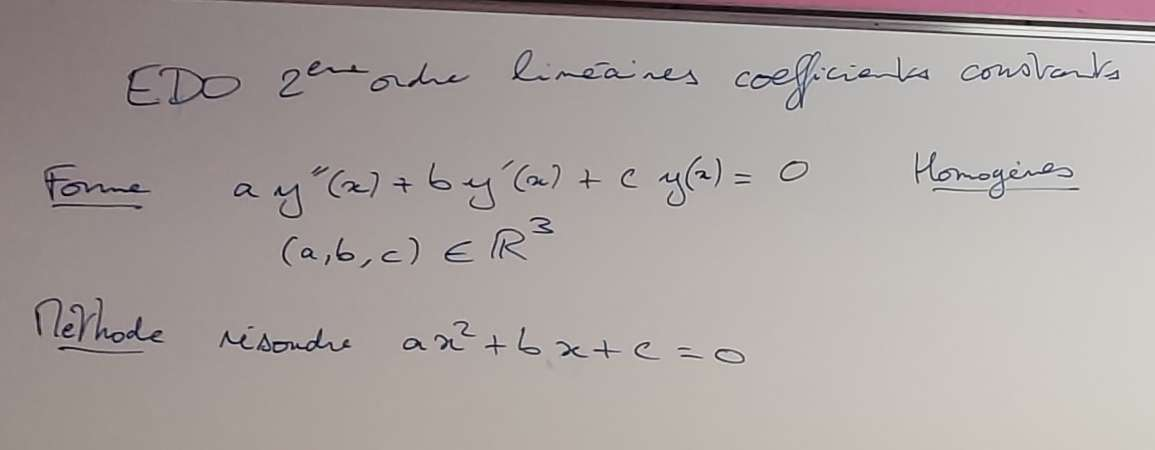 EDO 2ème ordre linéaires coefficients constants
Forme a y"(x) + b y'(x) + c y(x) = 0 Homogènes
(a,b,c) ∈ ℝ³
Méthode résoudre ax² + bx + c = 0